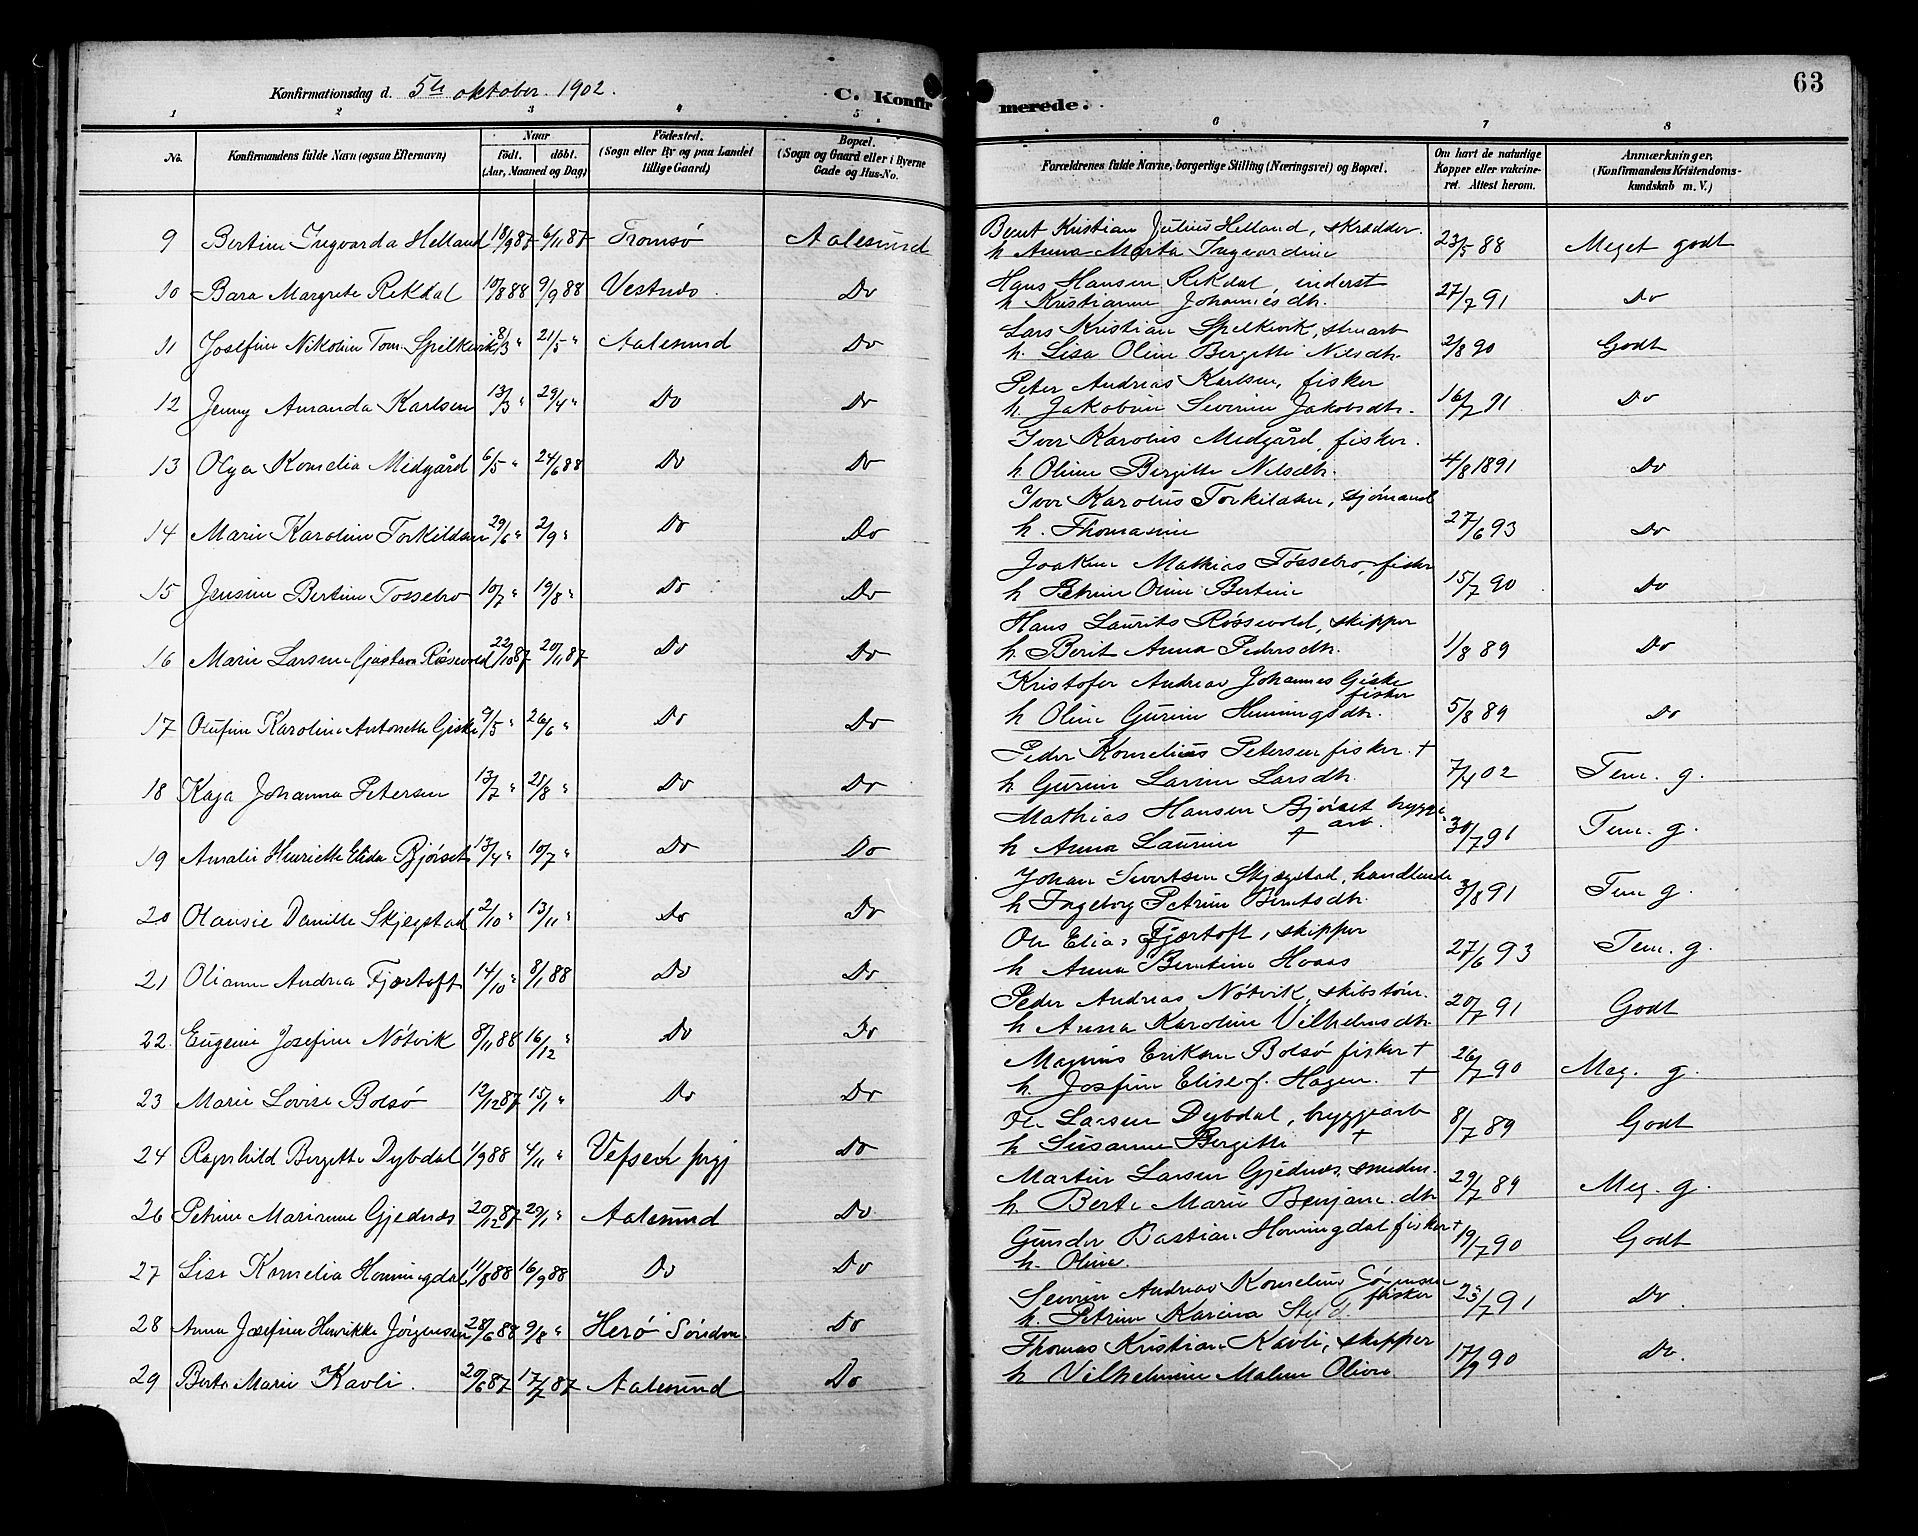 63
Konfirmationsdag d. 5te oktober 1902.
C. Konfirmerede.
1 2 3 4 5 6 7 8
No.
Konfirmandens fulde Navn (ogsaa Efternavn)
Naar
födt. döbt.
(Aar, Maaned og Dag)
Födested.
(Sogn eller By og paa Landet
tillige Gaard)
Bopæl.
(Sogn og Gaard eller i Byerne
Gade og Hus-No.
Forældrenes fulde Navne, borgerlige Stilling (Næringsvei) og Bopæl.
Om havt de naturlige
Kopper eller vakcine-
ret. Attest herom.
Anmærkninger,
(Konfirmandens Kristendoms-
kundskab m. V.)
9 Bertine Ingvarda Helland 18/9 87 6/11 87 Tromsø Aalesund Bernt Kristian Julius Helland, skrædder.
h Anna Marta Ingvardine 23/5 88 Meget godt
10 Bara Margrete Rekdal 10/8 88 9/9 88 Vestnes Do Hans Hansen Rekdal, inderst
h Kristianne Johannesdtr. 27/7 91 Do
11 Josefine Nikoline Tom. Spilkevik 8/3 " 21/5 " Aalesund Do Lars Kristian Spelkevik, stuart
h. Lisa Oline Bergitte Nilsdtr. 2/8 90 Godt
12 Jenny Amanda Karlsen 13/3 " 29/4 " Do Do Peter Andreas Karlsen, fisker
h. Jakobine Severine Jakobsdtr. 16/7 91 Do
13 Olga Kornelia Midgård 6/5 " 24/6 88 Do Do Iver Karolus Midgård, fisker.
h Oline Bergitte Nilsdtr. 4/8 1891 Do
14 Marie Karoline Torkildsen 29/6 " 2/9 " Do Do Iver Karolus Torkildsen, sjømand
h. Thomasine 27/6 93 Do
15 Jensine Bertine Tossebro 10/7 " 19/8 " Do Do Joakim Mathias Tøssebro, fisker
h Petrine Oline Bertine 15/7 90 Do
16 Marie Larsine Gustava Røsevold 22/10 87 20/11 87 Do Do Hans Laurits Røssevold, skipper
h. Berit Anna Pedersdtr. 1/8 89 Do
17 Olufine Karoline Antonette Giske 9/5 " 26/6 " Do Do Kristofer Andreas Johannes Giske
fisker
h Oline Gurine Henningsdtr. 5/8 89 Do
18 Kaja Johanna Petersen 13/7 " 28/8 " Do Do Peder Kornelius Petersen fisker. †
h Gurine Larsine Larsdtr. 7/4 02 Tem. g.
19 Amalie Henriette Elida Bjørset 13/4 " 10/7 " Do Do Mathias Hansen Bjørset brygge
arb.
h Anna Laurine † 30/7 91 Tem. g.
20 Olausie Danitte Skjegstad 2/10 " 13/11 " Do Do Johan Sivertsen Skjegstad, handlende
h Ingeborg Petrine Berntsdtr. 3/8 91 Tem g.
21 Olianne Andrea Fjærtoft 14/10 " 8/1 88 Do Do Ole Elias Fjærtoft, skipper
h Anna Berntine Hoaas 27/6 93 Tem. g.
22. Eugenie Josefine Nötvik 8/11 88 16/12 " Do Do Peder Andreas Nötvik, skibstøm.
h Anna Karoline Vilhelmsdtr. 20/7 91 Godt
23 Marie Lovise Bolsö 12/12 87 15/1 " Do Do Magnus Eriksen Bolsø fisker †
h. Josefine Elise f. Hagen. † 26/7 90 Meg. g.
24 Ragnhild Bergitte Dybdal 1/9 88 4/11 " Vefsen prgj Do Ole Larsen Dybdal, bryggearb
h Susanne Bergitte † 8/7 89 Godt
26 Petrine Marianne Gjednæs 20/12 87 29/1 " Aalesund Do Martin Larsen Gjednæs, snedker.
h. Berte Marie Benjam. dtr 29/7 89 Meg. g.
27 Lise Kornelia Honningdal 11/8 88 16/9 88 Do Do Gunder Bastian Honningdal fisker †
h. Oline 19/7 90 Godt
28 Anna Josefine Henrikke Jörgensen 28/6 88 9/8 " Herö Söndm. Do Severin Andreas Kornelius
fisker
h. Petrine Karina 23/7 91 Do
29 Berte Marie Kavli. 20/6 87 17/7 87 Aalesund Do Thomas Kristian Kavli, skipper
h Vilhelmine Malene Olive 17/9 90 Do.